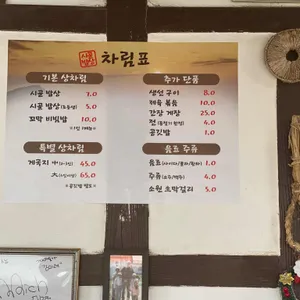 시골밥상 차림표
기본 상차림
시골 밥상 7.0
시골 밥상 5.0
꼬막 비빔밥 10.0
추가 단품
생선 구이 8.0
제육 볶음 10.0
간장 게장 25.0
전 4.0
공깃밥 1.0
특별 상차림
게국지 45.0
大 65.0
음료 주류
음료 2.0
주류 4.0
소원 막걸리 5.0